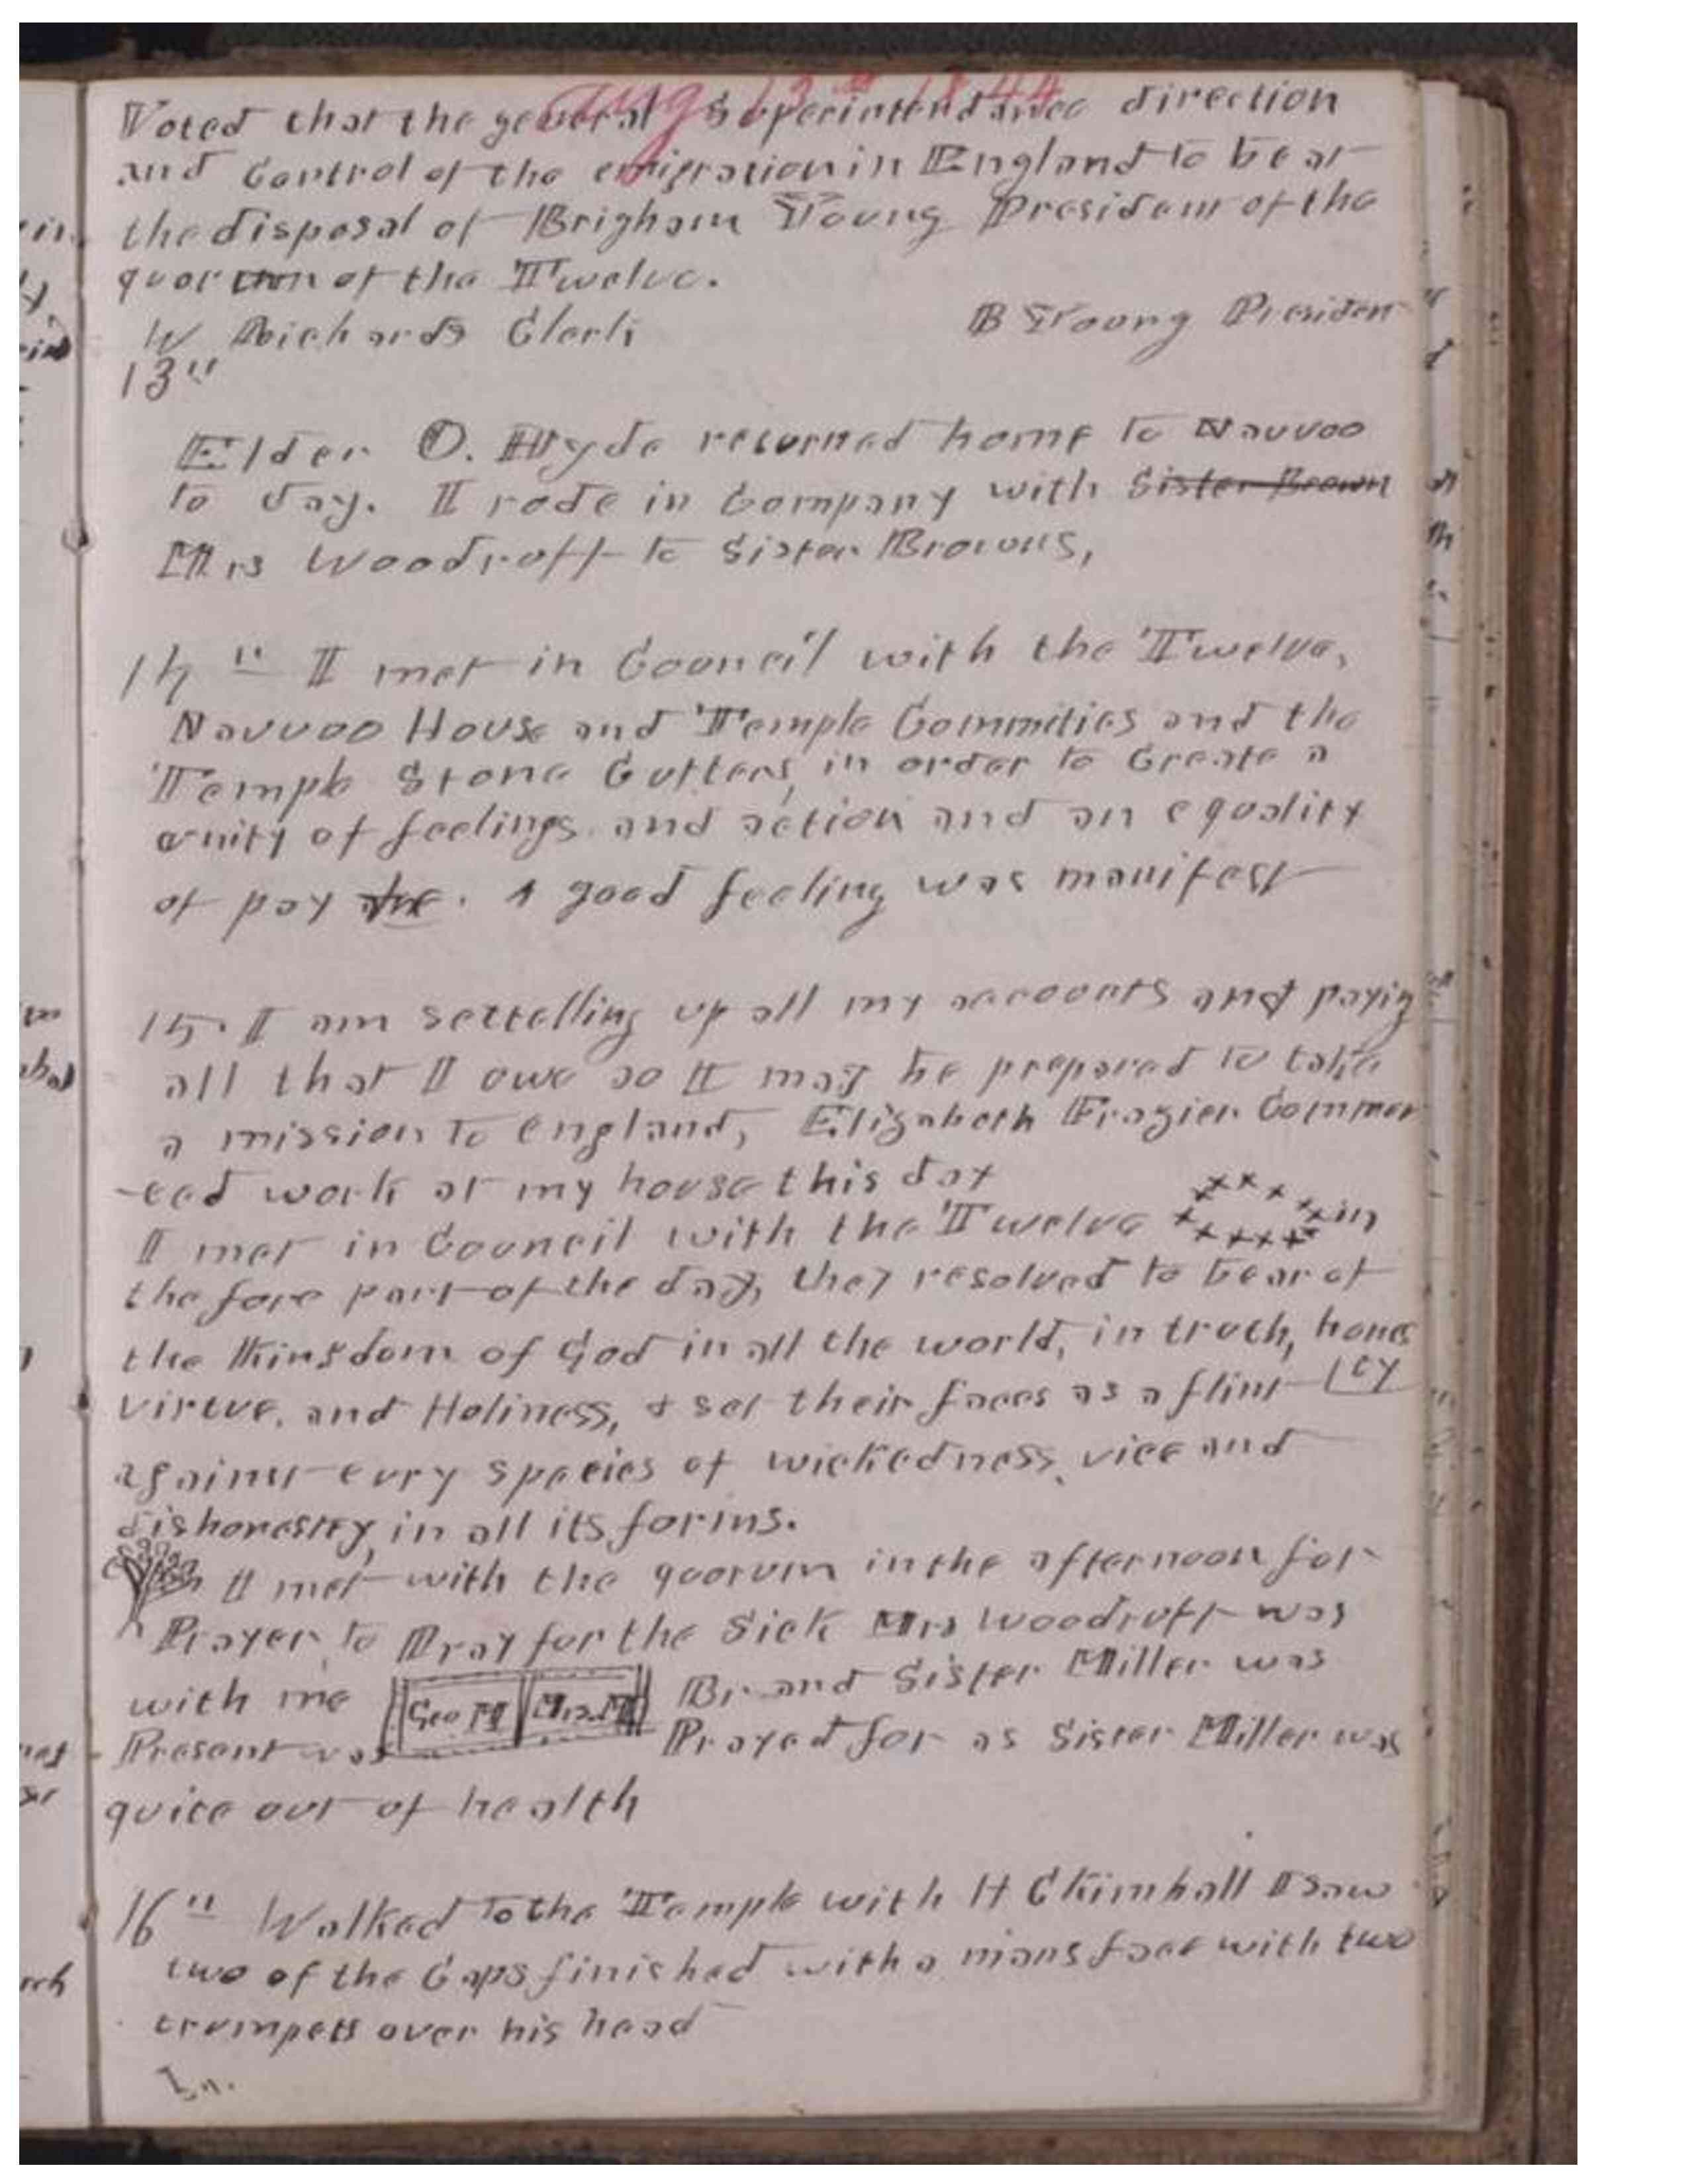 Aug 13th 1844
Voted that the general Superintendance direction
and Control of the emigration in England to be at
the disposal of Brigham Young President of the
quorum of the Twelve.
W Richards Clerk B Young Presiden
13"
Elder O. Hyde returned home to Nauvoo
to day. I rode in Company with Sister Brown
Mrs Woodruff to Sister Browns,
14" I met in Council with the Twelve,
Nauvoo House and Temple Commities and the
Temple Stone Cutters, in order to Create a
unity of feelings and action and an equality
of pay &c. A good feeling was manifest
15. I am settelling up all my accounts and paying
all that I owe so I may be prepared to take
a mission to England, Elizabeth Frazier Commen
-ced work at my house this day
I met in Council with the Twelve in
the fore part of the day, they resolved to bear of
the Kingdom of God in all the world, in truth, hones
virtue, and Holiness, & set their faces as a flint ty
against evry species of wickedness, vice and
dishonesty, in all its forms.
I met with the quorum in the afternoon for
Prayer, to Pray for the Sick Mrs Woodruff was
with me Geo M Mrs. M Br and Sister Miller was
Present was Prayed for as Sister Miller was
quite out of health
16" Walked to the Temple with H C Kimball I saw
two of the Caps finished with a mans face with two
trumpets over his head